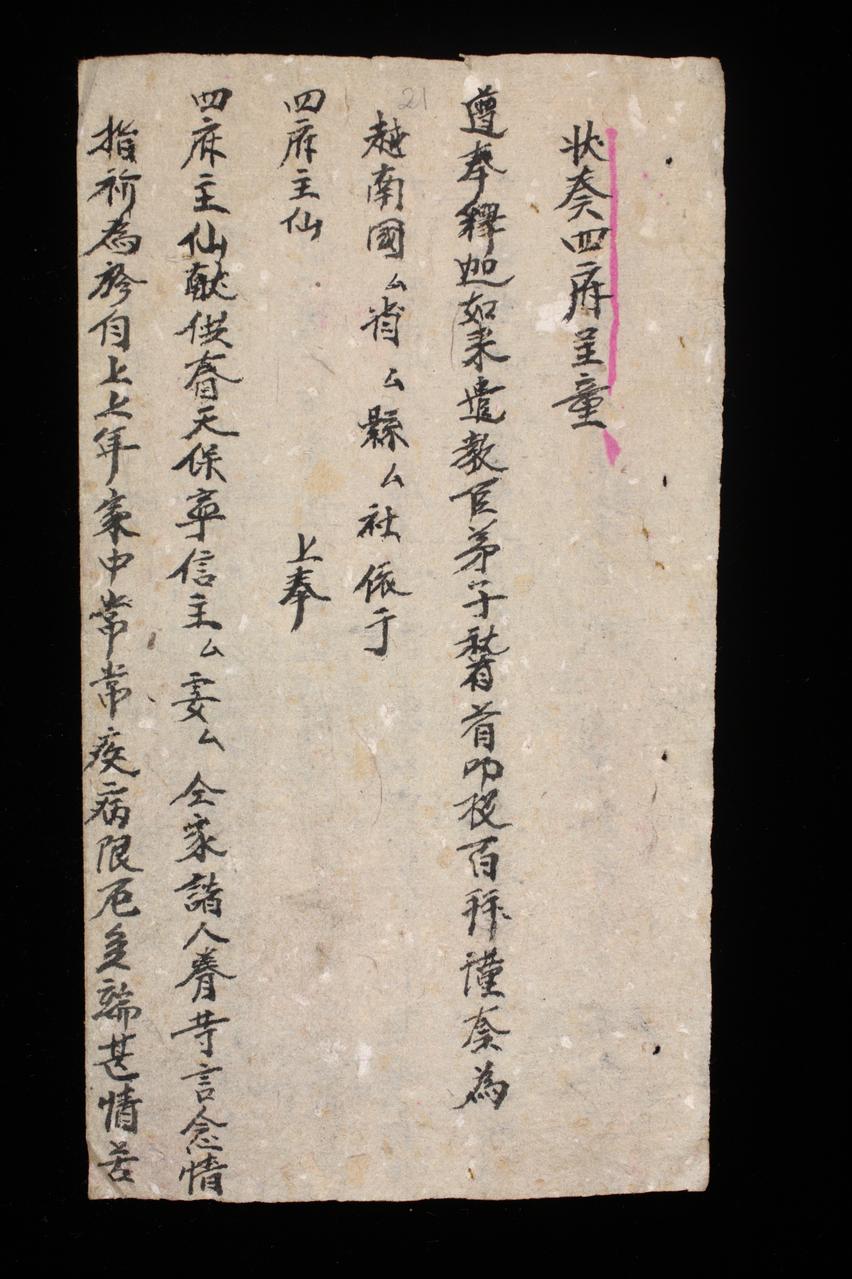 状奏四府呈童
尊奉釋迦如来遺教臣弟子稽首叩投百拜謹奏為
越南國厶省厶縣厶社依于
四府主仙　　上奉
四府主仙献供春天保寧信主厶妻厶仝家諸人眷等言念情
指祈為於自上上年家中常常疾病限厄多端甚情苦
21